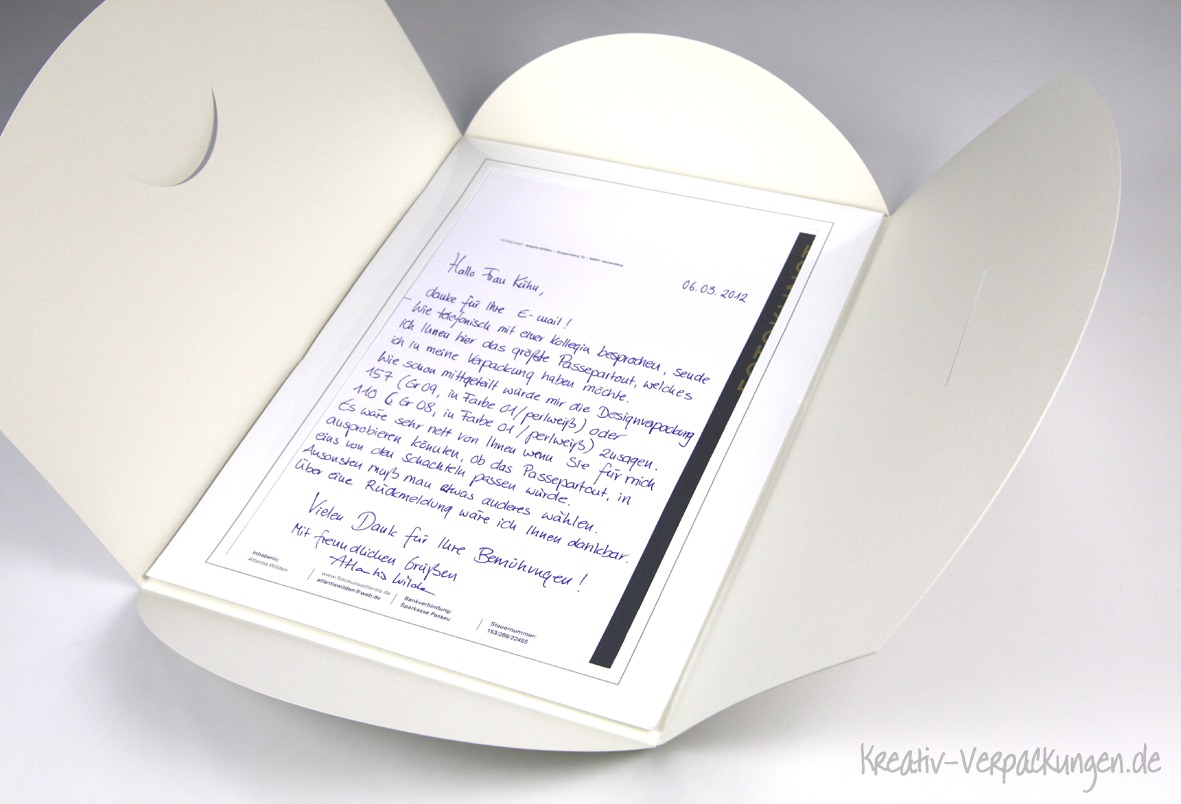 Hallo Frau Kühn,
06.03.2012
danke für Ihre E-mail!
Wie telefonisch mit einer Kollegin besprochen, sende
ich Ihnen hier das größte Passepartout, welches
ich in meine Verpackung haben möchte.
Wie schon mittgeteilt würde mir die Designverpackung
157 (Gr 09, in Farbe 01/perlweiß) oder
110 (Gr 08, in Farbe 01/perlweiß) zusagen.
Es wäre sehr nett von Ihnen wenn Sie für mich
ausprobieren könnten, ob das Passepartout, in
eins von den Schachteln passen würde.
Ansonsten muß man etwas anderes wählen.
Über eine Rückmeldung wäre ich Ihnen dankbar.
Vielen Dank für Ihre Bemühungen!
Mit freundlichen Grüßen
Atlantis Wilden
FOTOKUNST
Inhaberin:
Atlantis Wilden
www.fotokunstatlantis.de
atlantiswilden@web.de
Bankverbindung:
Sparkasse Passau
Steuernummer:
153/288/22455
Kreativ-Verpackungen.de